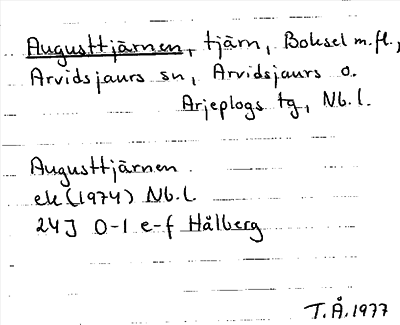 Augusttjärnen, tjärn, Boksel m.fl.,
Arvidsjaurs sn, Arvidsjaurs o.
Arjeplogs tg, Nb.l.
Augusttjärnen
ek (1974) Nb.l.
24J 0-1 e-f Hålberg
T.Å. 1977